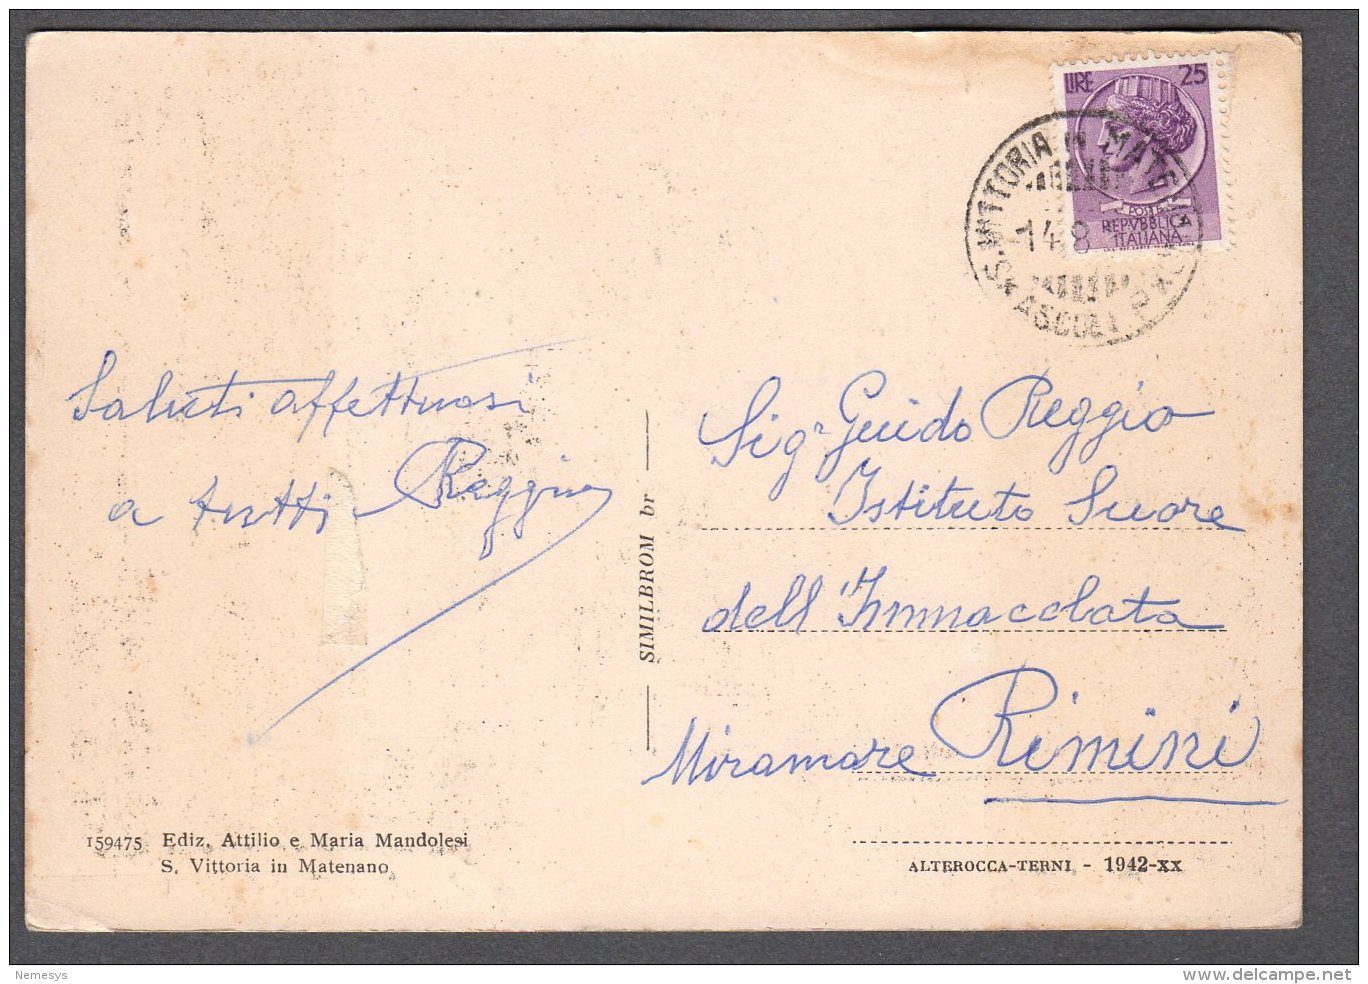 LIRE 25
POSTE
REPVBBLICA
ITALIANA
S. VITTORIA in MATENANO
14 8
ASCOLI P.
Saluti affettuosi
a tutti Reggio
Sigr Guido Reggio
Istituto Suore
dell'Immacolata
Miramare Rimini
SIMILBROM br
159475 Ediz. Attilio e Maria Mandolesi
S. Vittoria in Matenano
ALTEROCCA-TERNI - 1942-XX
Nemesys
www.delcampe.net